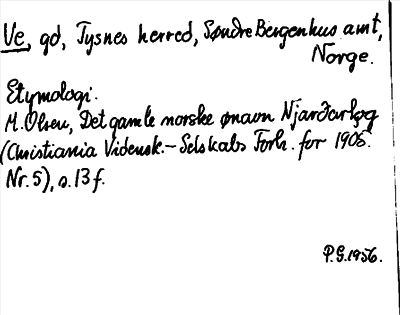 Ve, gd, Tysnes herred, Søndre Bergenhus amt,
Norge.
Etymologi.
M. Olsen, Det gamle norske ønavn Njarðarløg
(Christiania Vidensk.-Selskabs Forh. for 1905.
Nr. 5), s. 13 f.
P.G. 1956.